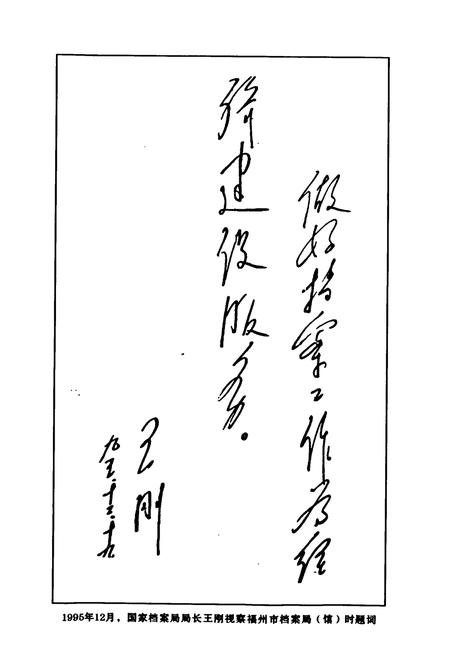 做好档案工作为经
济建设服务。
王刚
九五.十二.十九
1995年12月，国家档案局局长王刚视察福州市档案局（馆）时题词